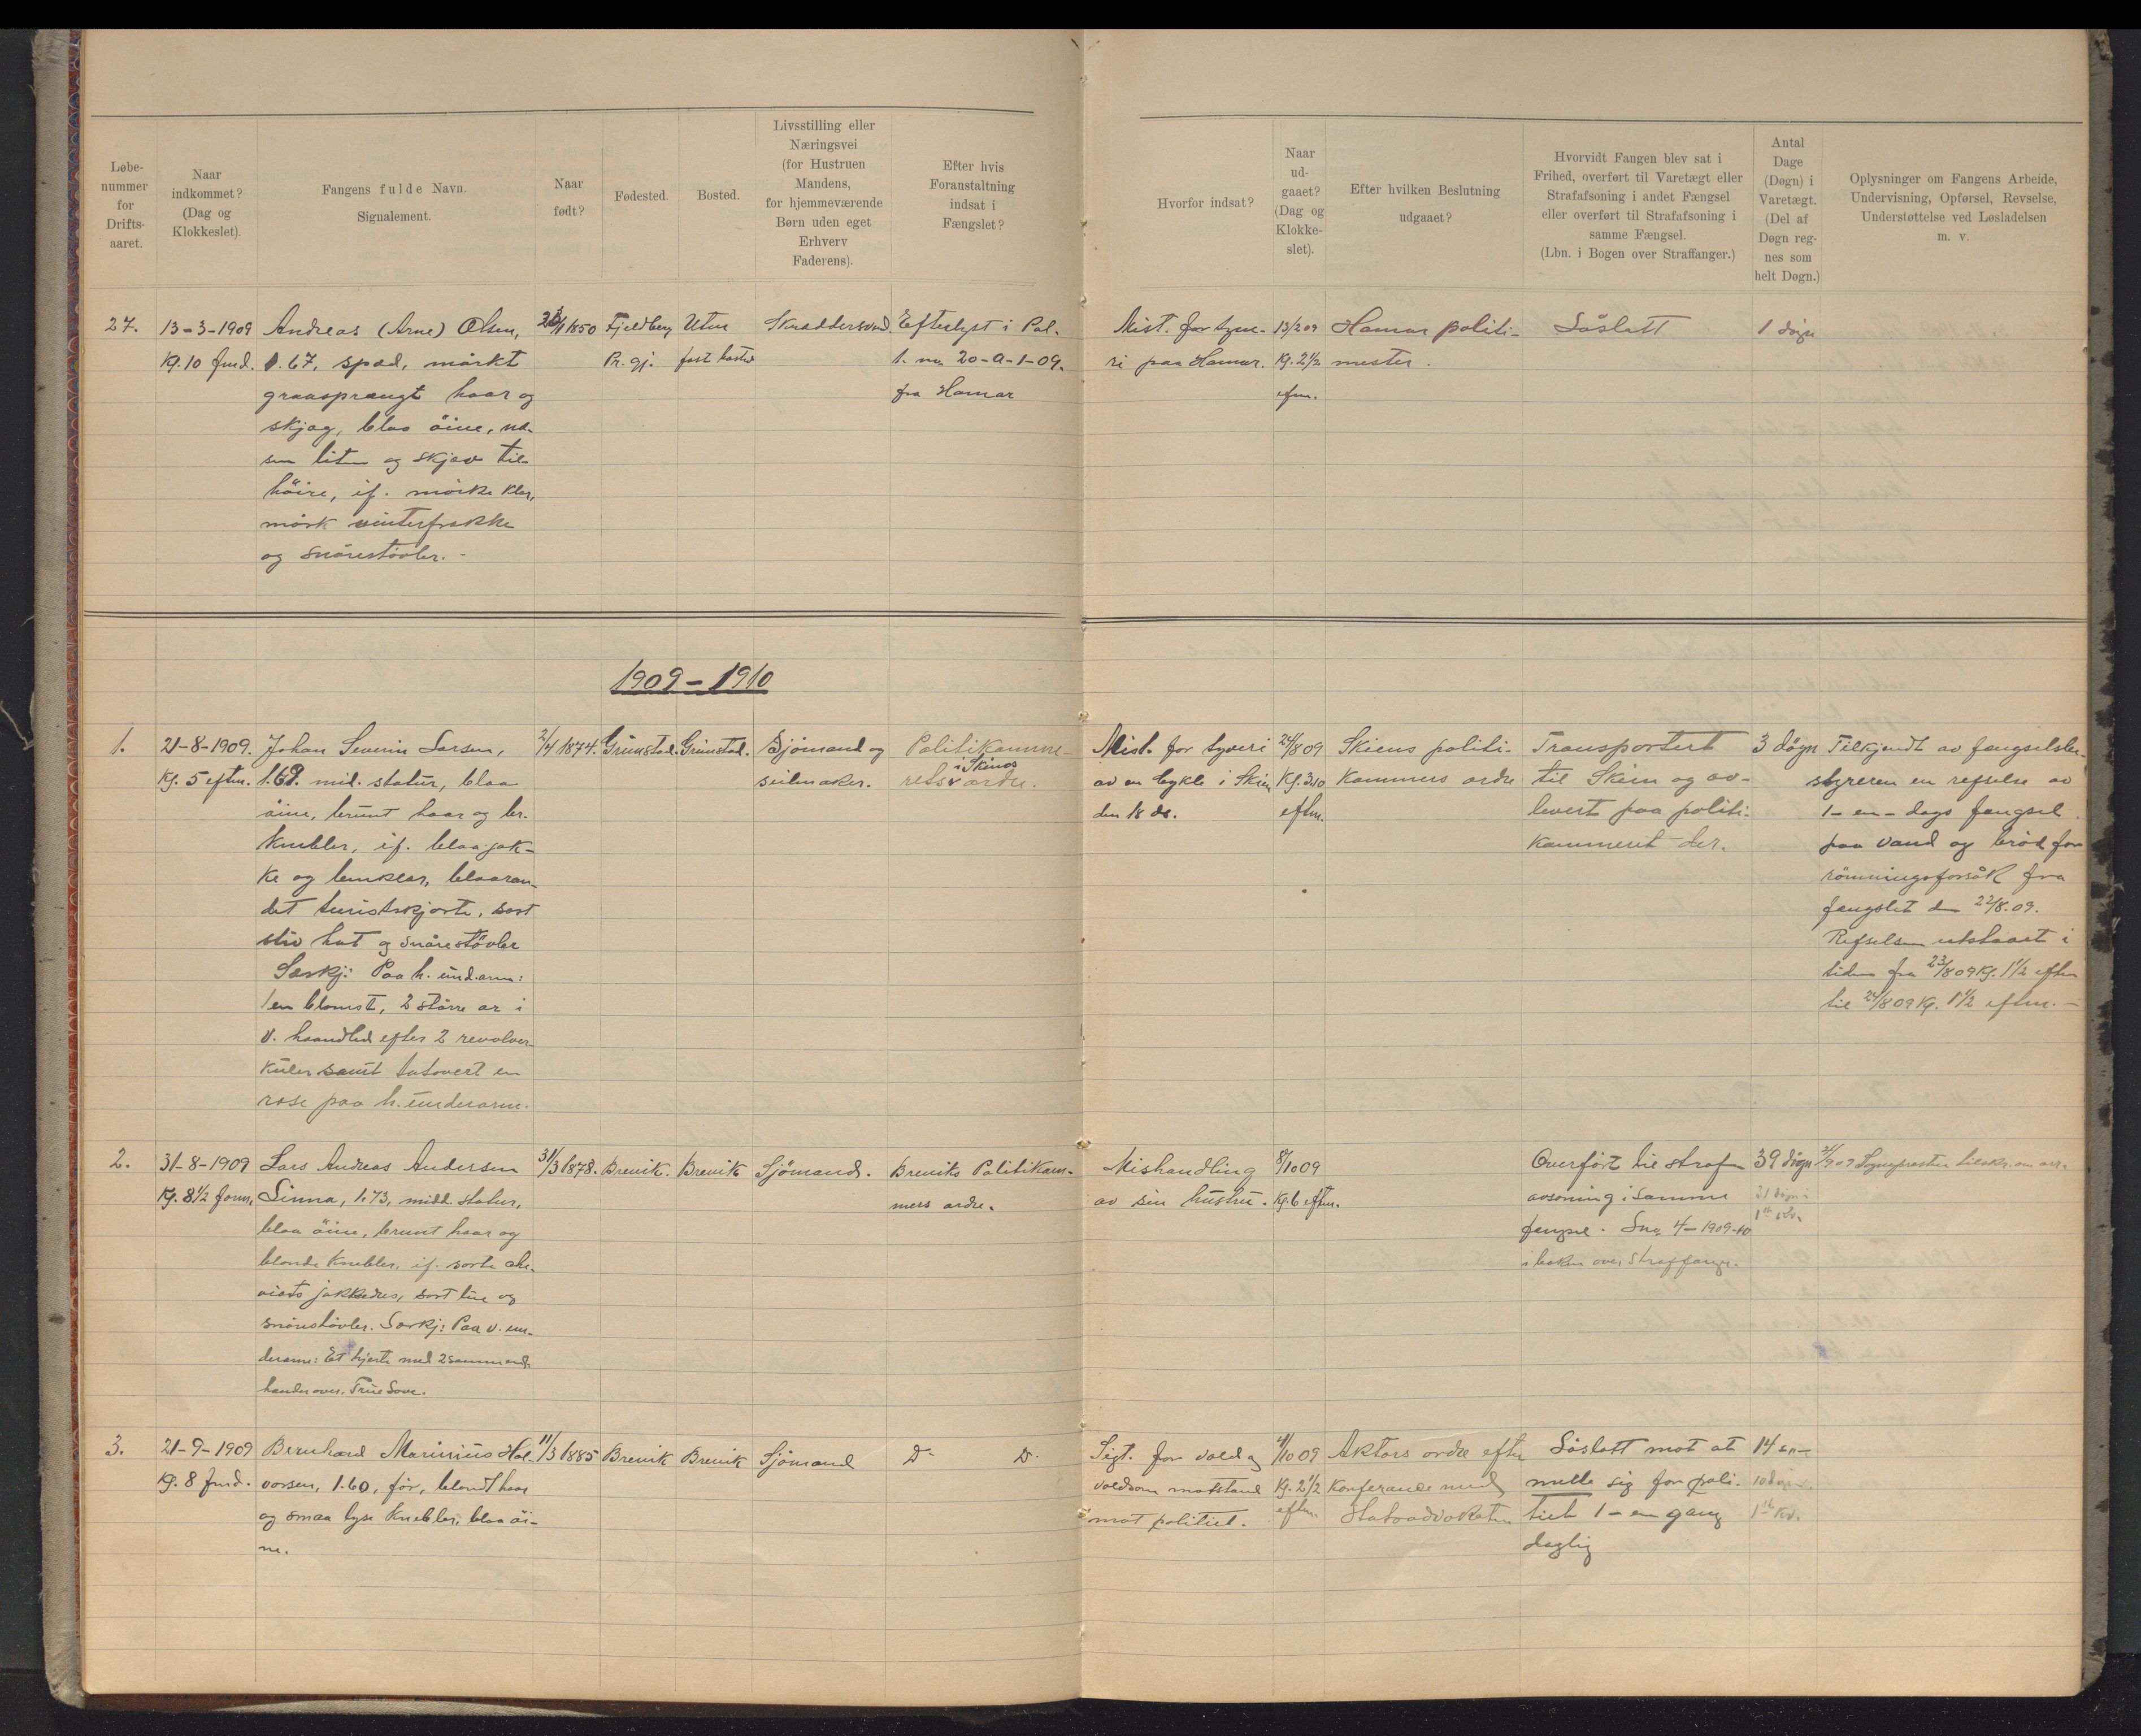 Løbe-
nummer
for
Drifts-
aaret.
Naar
indkommet?
(Dag og
Klokkeslet).
Fangens fulde Navn.
Signalement.
Naar
født?
Fødested.
Bosted.
Livsstilling eller
Næringsvei
(for Hustruen
Mandens,
for hjemmeværende
Børn uden eget
Erhverv
Faderens).
Efter hvis
Foranstaltning
indsat i
Fængslet?
Hvorfor indsat?
Naar
ud-
gaaet?
(Dag og
Klokke-
slet).
Efter hvilken Beslutning
udgaaet?
Hvorvidt Fangen blev sat i
Frihed, overført til Varetægt eller
Strafafsoning i andet Fængsel
eller overført til Strafafsoning i
samme Fængsel.
(Lbn. i Bogen over Straffanger.)
Antal
Dage
(Døgn) i
Varetægt.
(Del af
Døgn reg-
nes som
helt Døgn.)
Oplysninger om Fangens Arbeide,
Undervisning, Opførsel, Revselse,
Understøttelse ved Løsladelsen
m. v.
27.
13-3-1909
Kl. 10 fmd.
Andreas (Arne) Olsen,
1.67, spæd, mörkt
graasprængt haar og
skjæg, blaa öine, næ-
sen liten og skjæv til
höire, if. mörke klær,
mörk vinterfrakke
og snörestövler. -
1850
Fjeldberg
Pr. gj.
Uten
fast bosted
Skræddersvend
Efterlyst i Pol.
t. no 20-a-1-09.
fra Hamar
Mist. for tyve-
ri paa Hamar.
13/2 09
Kl. 2 1/2
efm.
Hamar politi-
mester.
Löslatt
1 dögn
1909 - 1910
1.
21-8-1909.
Kl. 5 eftm.
Johan Severin Larsen,
1.69. mid. statur, blaa
öine, brunt haar og br.
knebler, if. blaa jak-
ke og benklær, blaaran-
det turistskjorte, sort
stiv hat og snörestövler
Særkj: Paa h. und.arm:
1 en blomst, 2 större ar i
v. haandled efter 2 revolver-
kuler samt tatovert en
rose paa h. underarm.
2/4 1874.
Grimstad.
Grimstad.
Sjömand og
seilmaker.
Politikamme-
i Skiens
rets ordre.
Mist. for tyveri
av en cykle i Skien
den 18 ds.
24/8 09
Kl. 3 10
eftm.
Skiens politi-
kammers ordre
Transportert
til Skien og av-
levert paa politi-
kammeret der.
3 dögn
Tilkjendt av fængselsbe-
styreren en refselse av
1 - en - dags fængsel
paa vand og bröd for
römningsforsök fra
fængslet den 22/8.09.
Refselsen utstaaet i
tiden fra 23/8 09 Kl. 1 1/2 eftm
til 24/8 09 Kl. 1 1/2 eftm. -
2.
31-8-1909
Kl. 8 1/2 form.
Lars Andreas Andersen
Linna, 1.73, midd. statur,
blaa öine, brunt haar og
blonde knebler, if. sorte che-
viots jakkedres, sort lue og
snörestövler. Særkj: Paa v. un-
derarm: Et hjerte med 2
hænder over. True Love.
31/3 1878.
Brevik.
Brevik
Sjömand.
Breviks Politikam-
mers ordre.
Mishandling
av sin hustru.
8/10 09
Kl. 6 eftm.
Overfört til straf-
avsoning i samme
fengsel. Lno 4-1909-10
i boken over straffanger.
39 dögn
31 dögn i
1ste
3.
21-9-1909
Kl. 8 fmd.
Bernhard Marinius Hal-
vorsen, 1.60, för, blondt haar
og smaa lyse knebler, blaa öi-
ne.
11/3 1885
Brevik
Brevik
Sjömand
Do
Do
Sigt. for vold og
voldsom motstand
mot politiet.
4/10 09
Kl. 2 1/2
eftm.
Aktors ordre efter
konferance med
Statsadvokaten
Löslatt mot at
melde sig for poli-
tiet 1 - en gang
daglig
14
10
1ste kv.